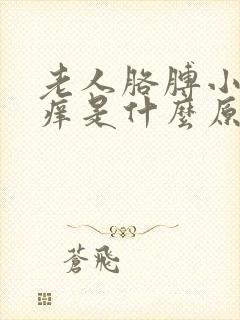 老人胳膊小
痒是什麼原
蒼飛